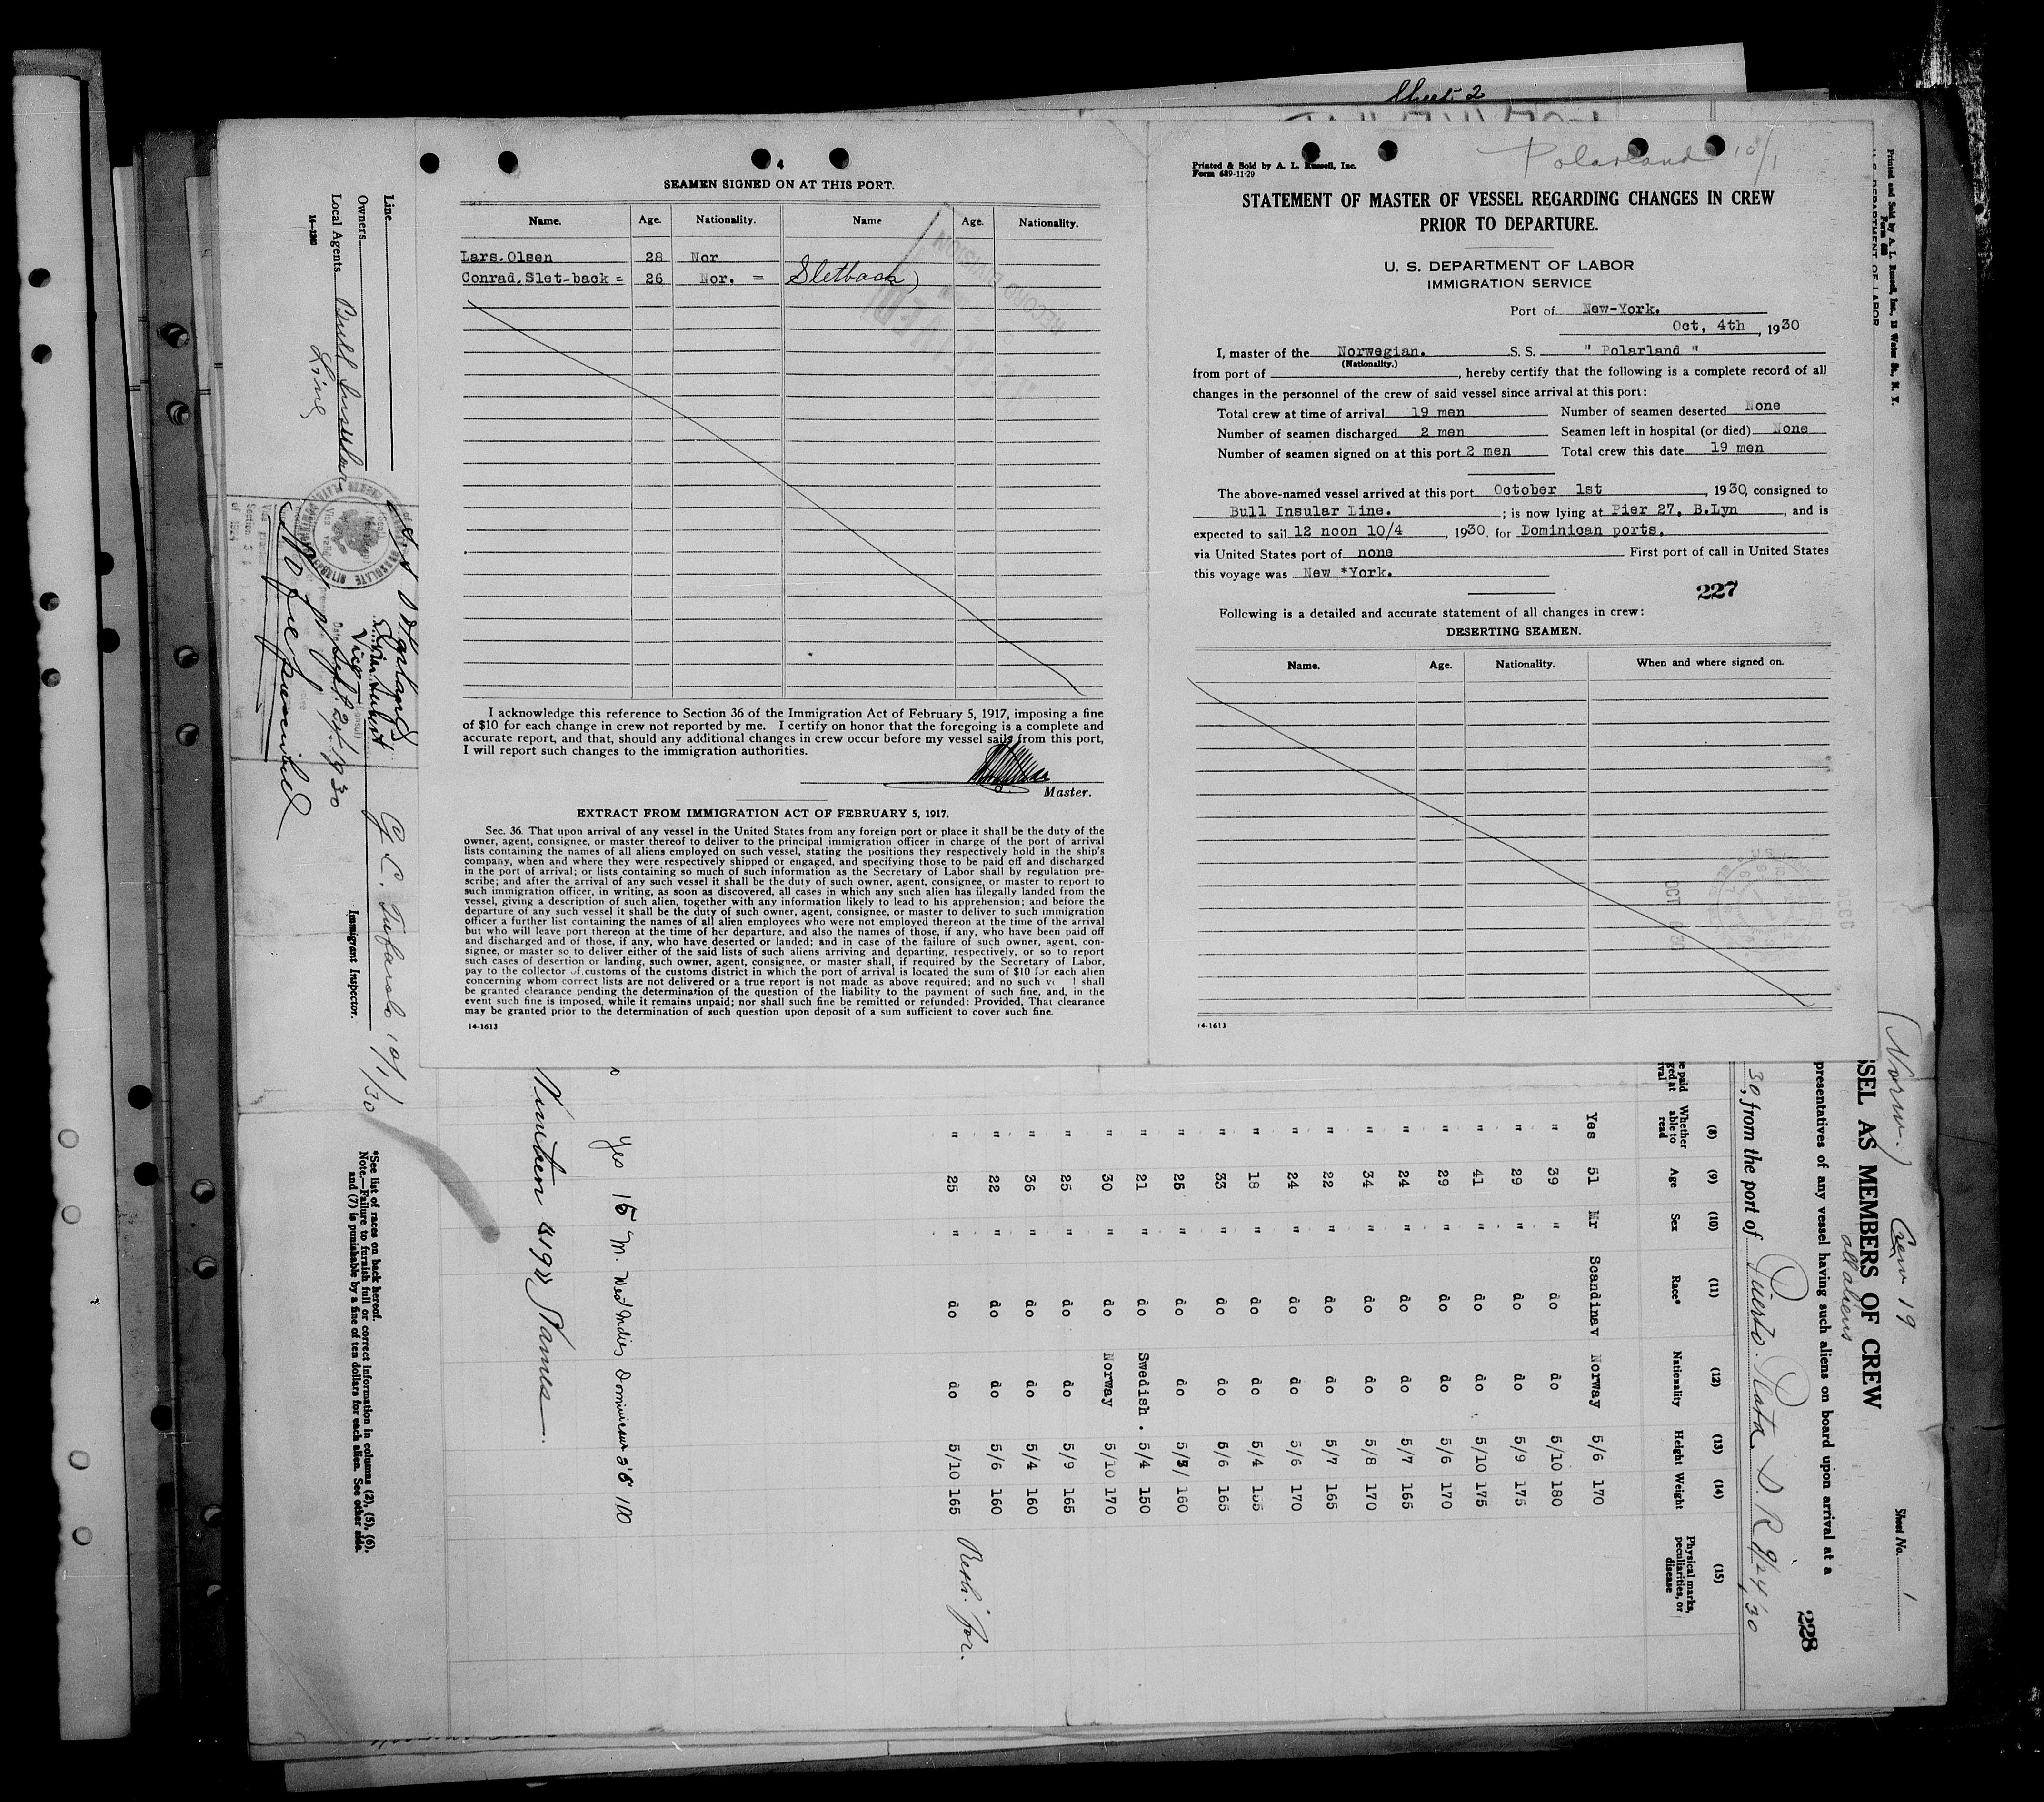 Sheet 2
4
SEAMEN SIGNED ON AT THIS PORT.
Name. Age. Nationality. Name Age. Nationality.
Lars. Olsen 28 Nor
Conrad. Slet-back = 26 Nor. = Sletback)
RECORD DIVISION
I acknowledge this reference to Section 36 of the Immigration Act of February 5, 1917, imposing a fine
of $10 for each change in crew not reported by me. I certify on honor that the foregoing is a complete and
accurate report, and that, should any additional changes in crew occur before my vessel sails from this port,
I will report such changes to the immigration authorities.
Master.
EXTRACT FROM IMMIGRATION ACT OF FEBRUARY 5, 1917.
Sec. 36. That upon arrival of any vessel in the United States from any foreign port or place it shall be the duty of the
owner, agent, consignee, or master thereof to deliver to the principal immigration officer in charge of the port of arrival
lists containing the names of all aliens employed on such vessel, stating the positions they respectively hold in the ship's
company, when and where they were respectively shipped or engaged, and specifying those to be paid off and discharged
in the port of arrival; or lists containing so much of such information as the Secretary of Labor shall by regulation pre-
scribe; and after the arrival of any such vessel it shall be the duty of such owner, agent, consignee, or master to report to
such immigration officer, in writing, as soon as discovered, all cases in which any such alien has illegally landed from the
vessel, giving a description of such alien, together with any information likely to lead to his apprehension; and before the
departure of any such vessel it shall be the duty of such owner, agent, consignee, or master to deliver to such immigration
officer a further list containing the names of all alien employees who were not employed thereon at the time of the arrival
but who will leave port thereon at the time of her departure, and also the names of those, if any, who have been paid off
and discharged and of those, if any, who have deserted or landed; and in case of the failure of such owner, agent, con-
signee, or master so to deliver either of the said lists of such aliens arriving and departing, respectively, or so to report
such cases of desertion or landing, such owner, agent, consignee, or master shall, if required by the Secretary of Labor,
pay to the collector of customs of the customs district in which the port of arrival is located the sum of $10 for each alien
concerning whom correct lists are not delivered or a true report is not made as above required; and no such ve l shall
be granted clearance pending the determination of the question of the liability to the payment of such fine, and, in the
event such fine is imposed, while it remains unpaid; nor shall such fine be remitted or refunded: Provided, That clearance
may be granted prior to the determination of such question upon deposit of a sum sufficient to cover such fine.
14-1613
Printed & Sold by A. L. Russell, Inc.
Form 689-11-29
Polarland 10/1
STATEMENT OF MASTER OF VESSEL REGARDING CHANGES IN CREW
PRIOR TO DEPARTURE.
U. S. DEPARTMENT OF LABOR
IMMIGRATION SERVICE
Port of New-York.
Oct, 4th, 1930
I, master of the Norwegian. S. S. " Polarland "
(Nationality.)
from port of , hereby certify that the following is a complete record of all
changes in the personnel of the crew of said vessel since arrival at this port:
Total crew at time of arrival 19 men Number of seamen deserted None
Number of seamen discharged 2 men Seamen left in hospital (or died) None
Number of seamen signed on at this port 2 men Total crew this date 19 men
The above-named vessel arrived at this port October 1st, 1930, consigned to
Bull Insular Line. ; is now lying at Pier 27, B.Lyn, and is
expected to sail 12 noon 10/4, 1930. for Dominican ports.
via United States port of none First port of call in United States
this voyage was New *York.
227
Following is a detailed and accurate statement of all changes in crew:
DESERTING SEAMEN.
Name. Age. Nationality. When and where signed on.
REC'D
OCT 6 30
14-1613
Printed and Sold by A. L. Russell, Inc., 13 Water St., N. Y.
Form 68
U. S. DEPARTMENT OF LABOR
(Norw.) Crew 19 Sheet No. 1
SSEL AS MEMBERS OF CREW
all aliens
presentatives of any vessel having such aliens on board upon arrival at a 228
30, from the port of Puerto Plata D. R 9/24/30
(8) (9) (10) (11) (12) (13) (14) (15)
Whether able to read Age Sex Race* Nationality Height Weight Physical marks, peculiarities, or disease
Yes 51 Mr Scandinav Norway 5/6 170
" 39 " do do 5/10 180
" 29 " do do 5/9 175
" 41 " do do 5/10 175
" 29 " do do 5/6 170
" 24 " do do 5/7 165
" 34 " do do 5/8 170
" 22 " do do 5/7 165
" 24 " do do 5/6 170
" 18 " do do 5/4 155
" 33 " do do 5/6 165
" 25 " do do 5/5/ 160
" 21 " do Swedish . 5/4 150
" 30 " do Norway 5/10 170
" 25 " do do 5/9 165
" 36 " do do 5/4 160
" 22 " do do 5/6 160
" 25 " do do 5/10 165
yes 15 M. West Indies Dominican 5'6" 100
Nineteen (19) Names.
Line
Owners
Local Agents Bull Insular
Line
C. Tufarolo 10/1/30
Immigrant Inspector.
Vice
Sept. 24/1930
*See list of races on back hereof.
Note.—Failure to furnish full or correct information in columns (2), (5), (6),
and (7) is punishable by a fine of ten dollars for each alien. See other side.